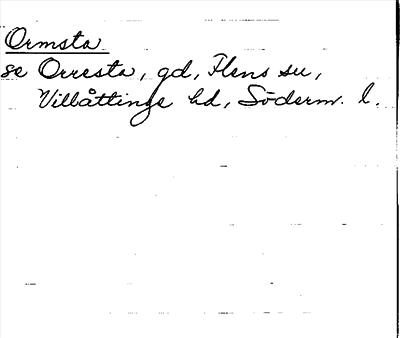 Ormsta
se Orresta, gd, Flens su,
Villåttinge hd, Söderm. l.